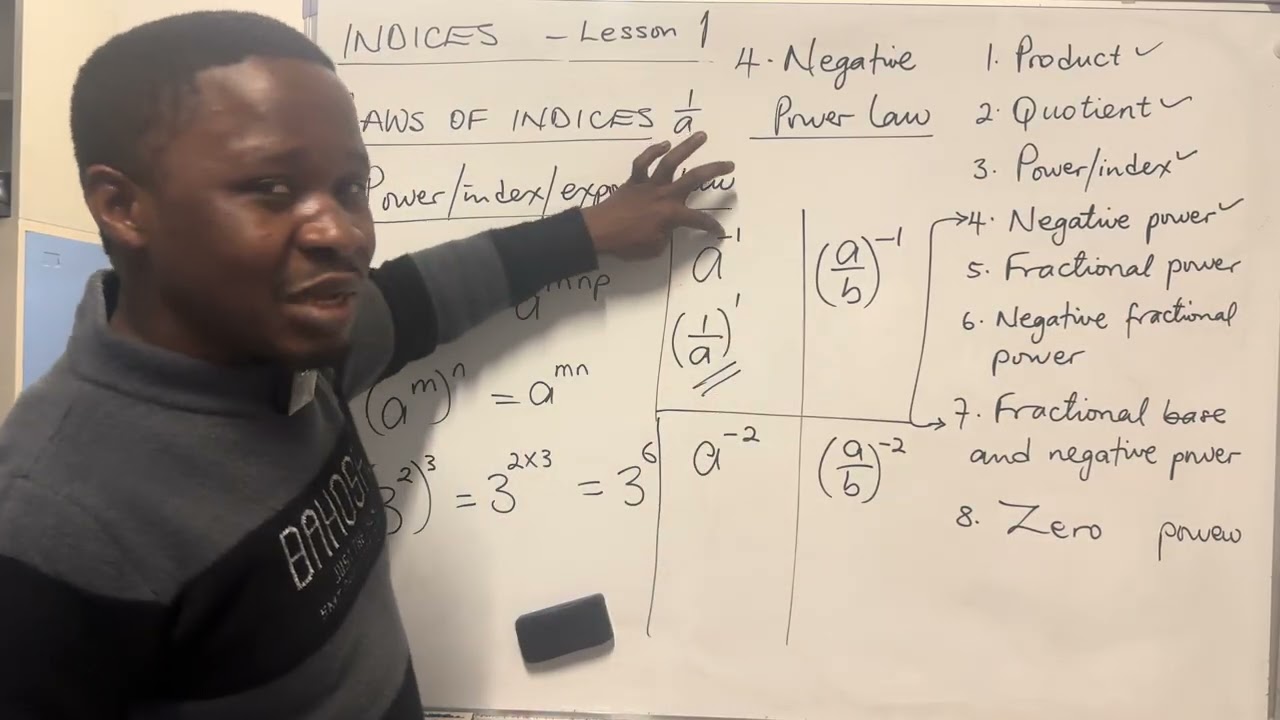 INDICES - Lesson 1
AWS OF INDICES 1/a
Power/index/exp
a^mnp
(a^m)^n = a^mn
3^2)^3 = 3^2×3 = 3^6
4. Negative
Power law
a^-1
(1/a)^1
(a/b)^-1
a^-2
(a/b)^-2
1. Product ✓
2. Quotient ✓
3. Power/index ✓
4. Negative power ✓
5. Fractional power
6. Negative fractional
power
7. Fractional base
and negative power
8. Zero power
BAHOS
JUS